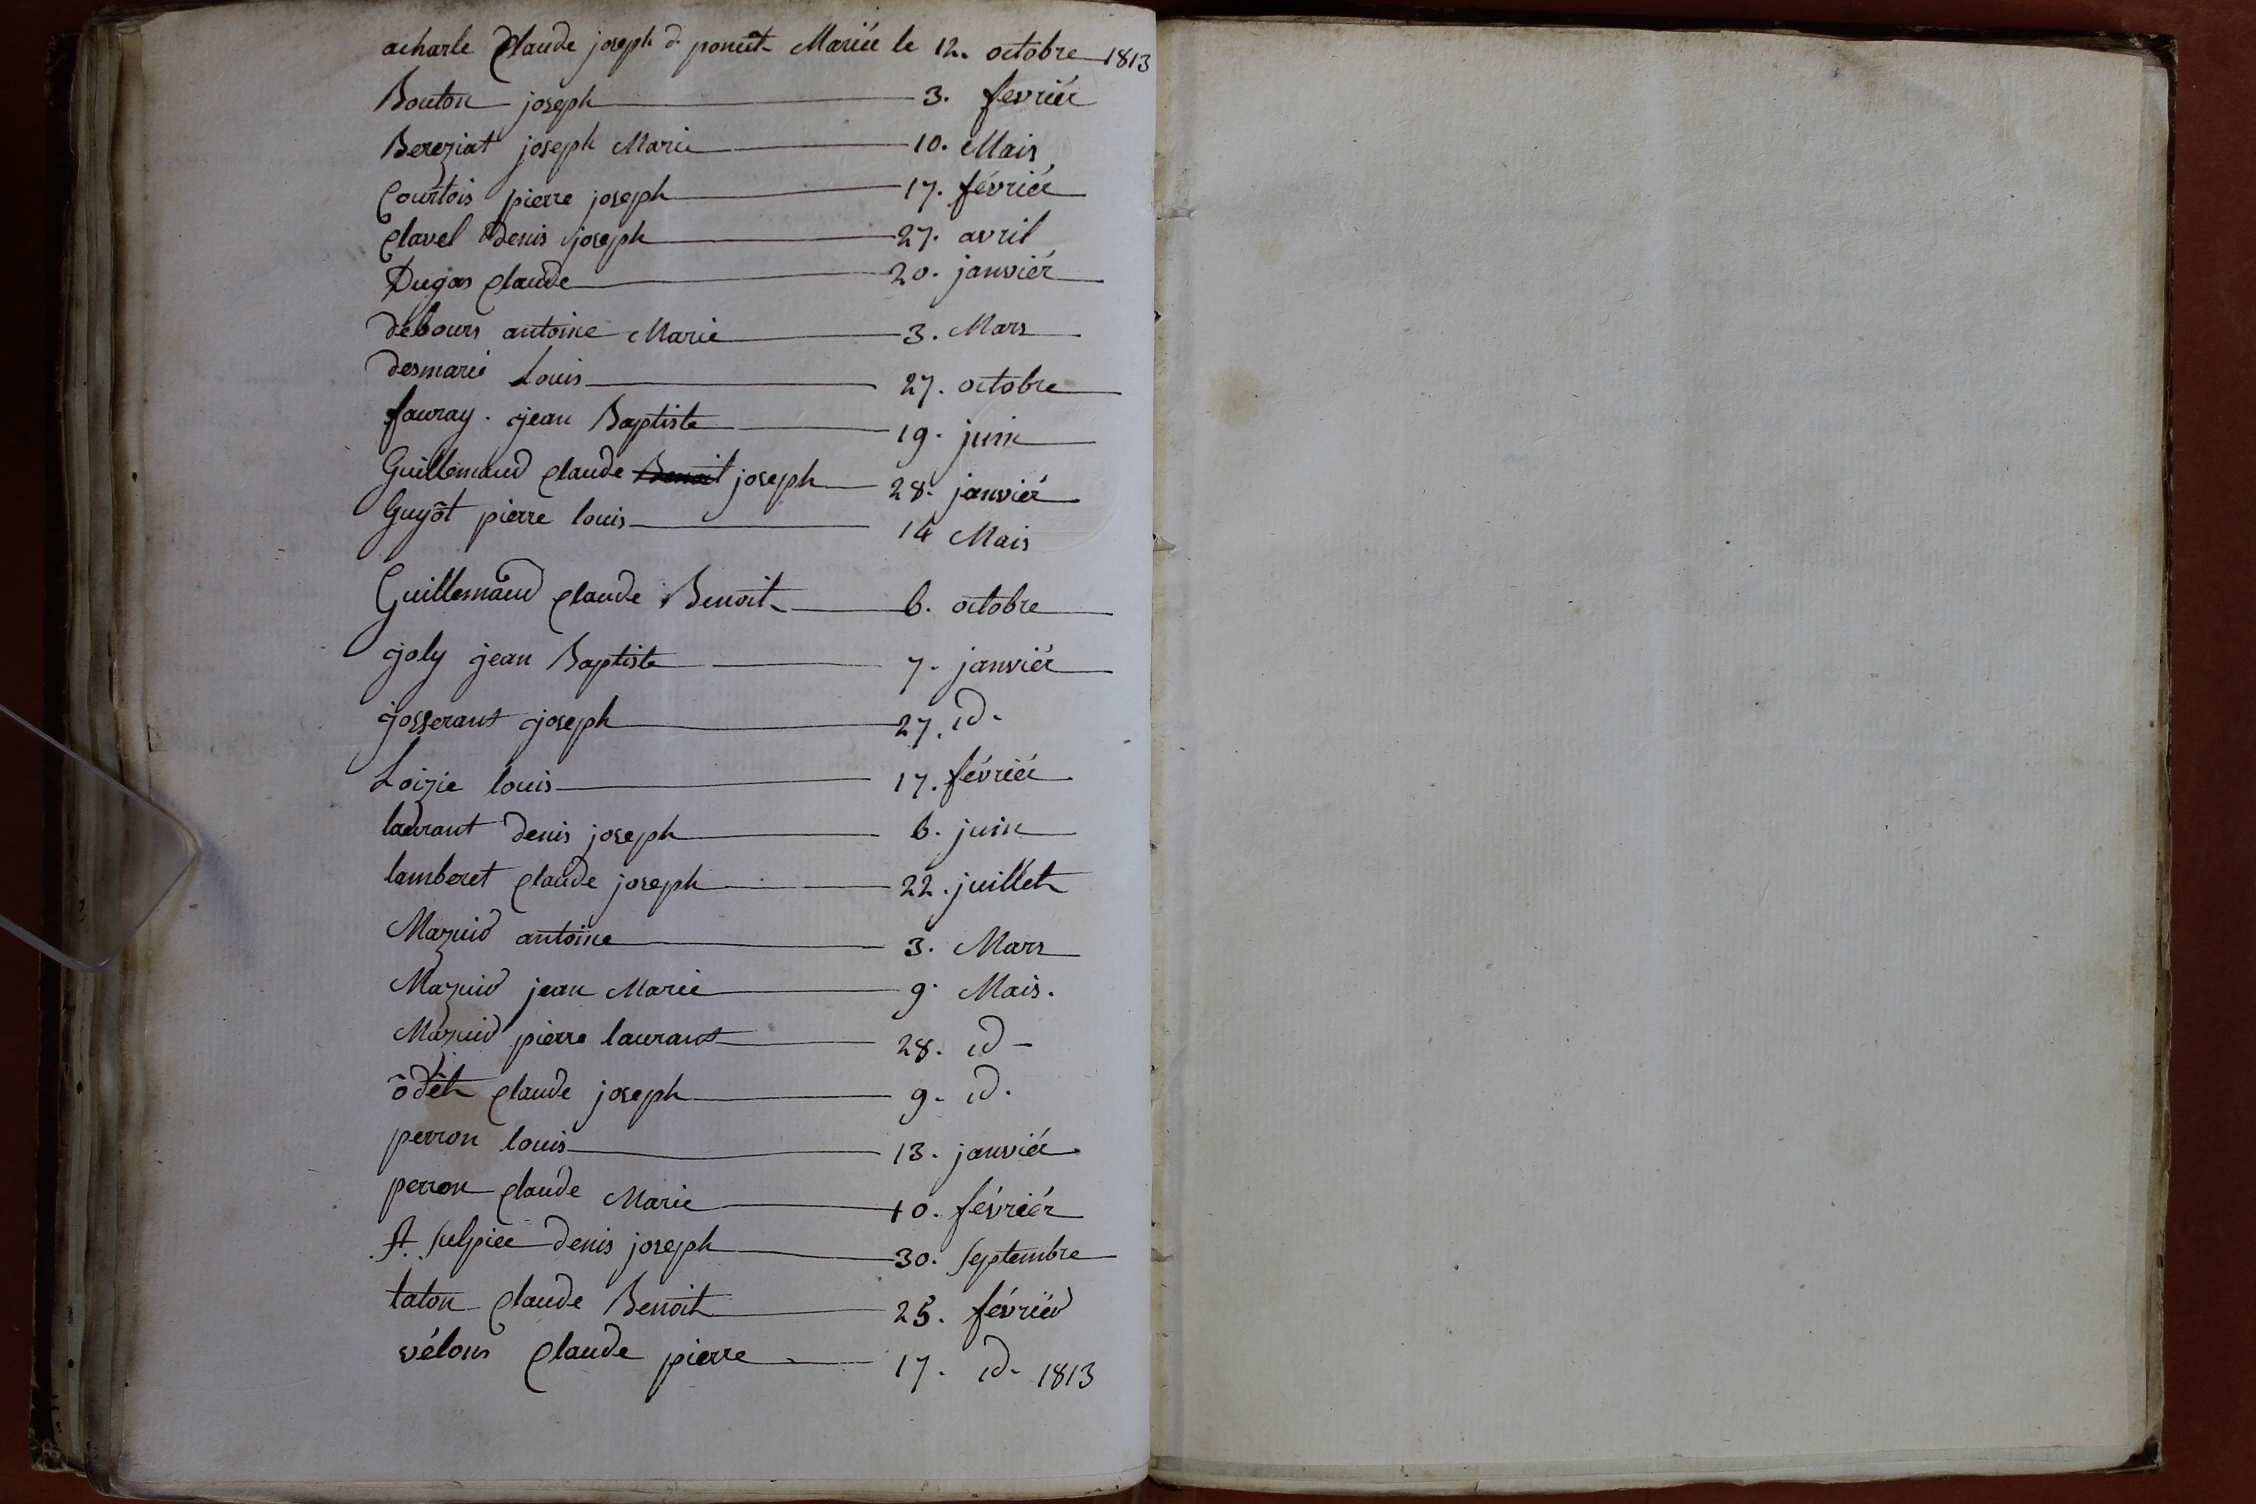 acharle Claude joseph d. poncet Mariée le 12. octobre 1813
Bouton joseph 3. fevriér
Bereziat joseph Marie 10. Mais
Courtois pierre joseph 17. févriér
Clavel denis joseph 27. avril
Dugas Claude 20. janviér
débours antoine Marie 3. Mars
desmarié Louis 27. octobre
fauray. jean Baptiste 19. juin
Guillemaud Claude Benoit joseph 28. janviér
Guyôt pierre louis 14 Mais
Guillemaud Claude Benoit 6. octobre
joly jean Baptiste 7. janviér
josserant joseph 27. id.
Loizie louis 17. févriér
laurant denis joseph 6. juin
lamberet Claude joseph 22. juillet
Mazuid antoine 3. Mars
Mazuid jean Marie 9. Mais.
Mazuid pierre laurant 28. id
ôdet Claude joseph 9. id.
perron louis 13. janviér
perron Claude Marie 10. févriér
st. sulpice denis joseph 30. septembre
taton Claude Benoit 25. févriér
vélous Claude pierre 17. id. 1813